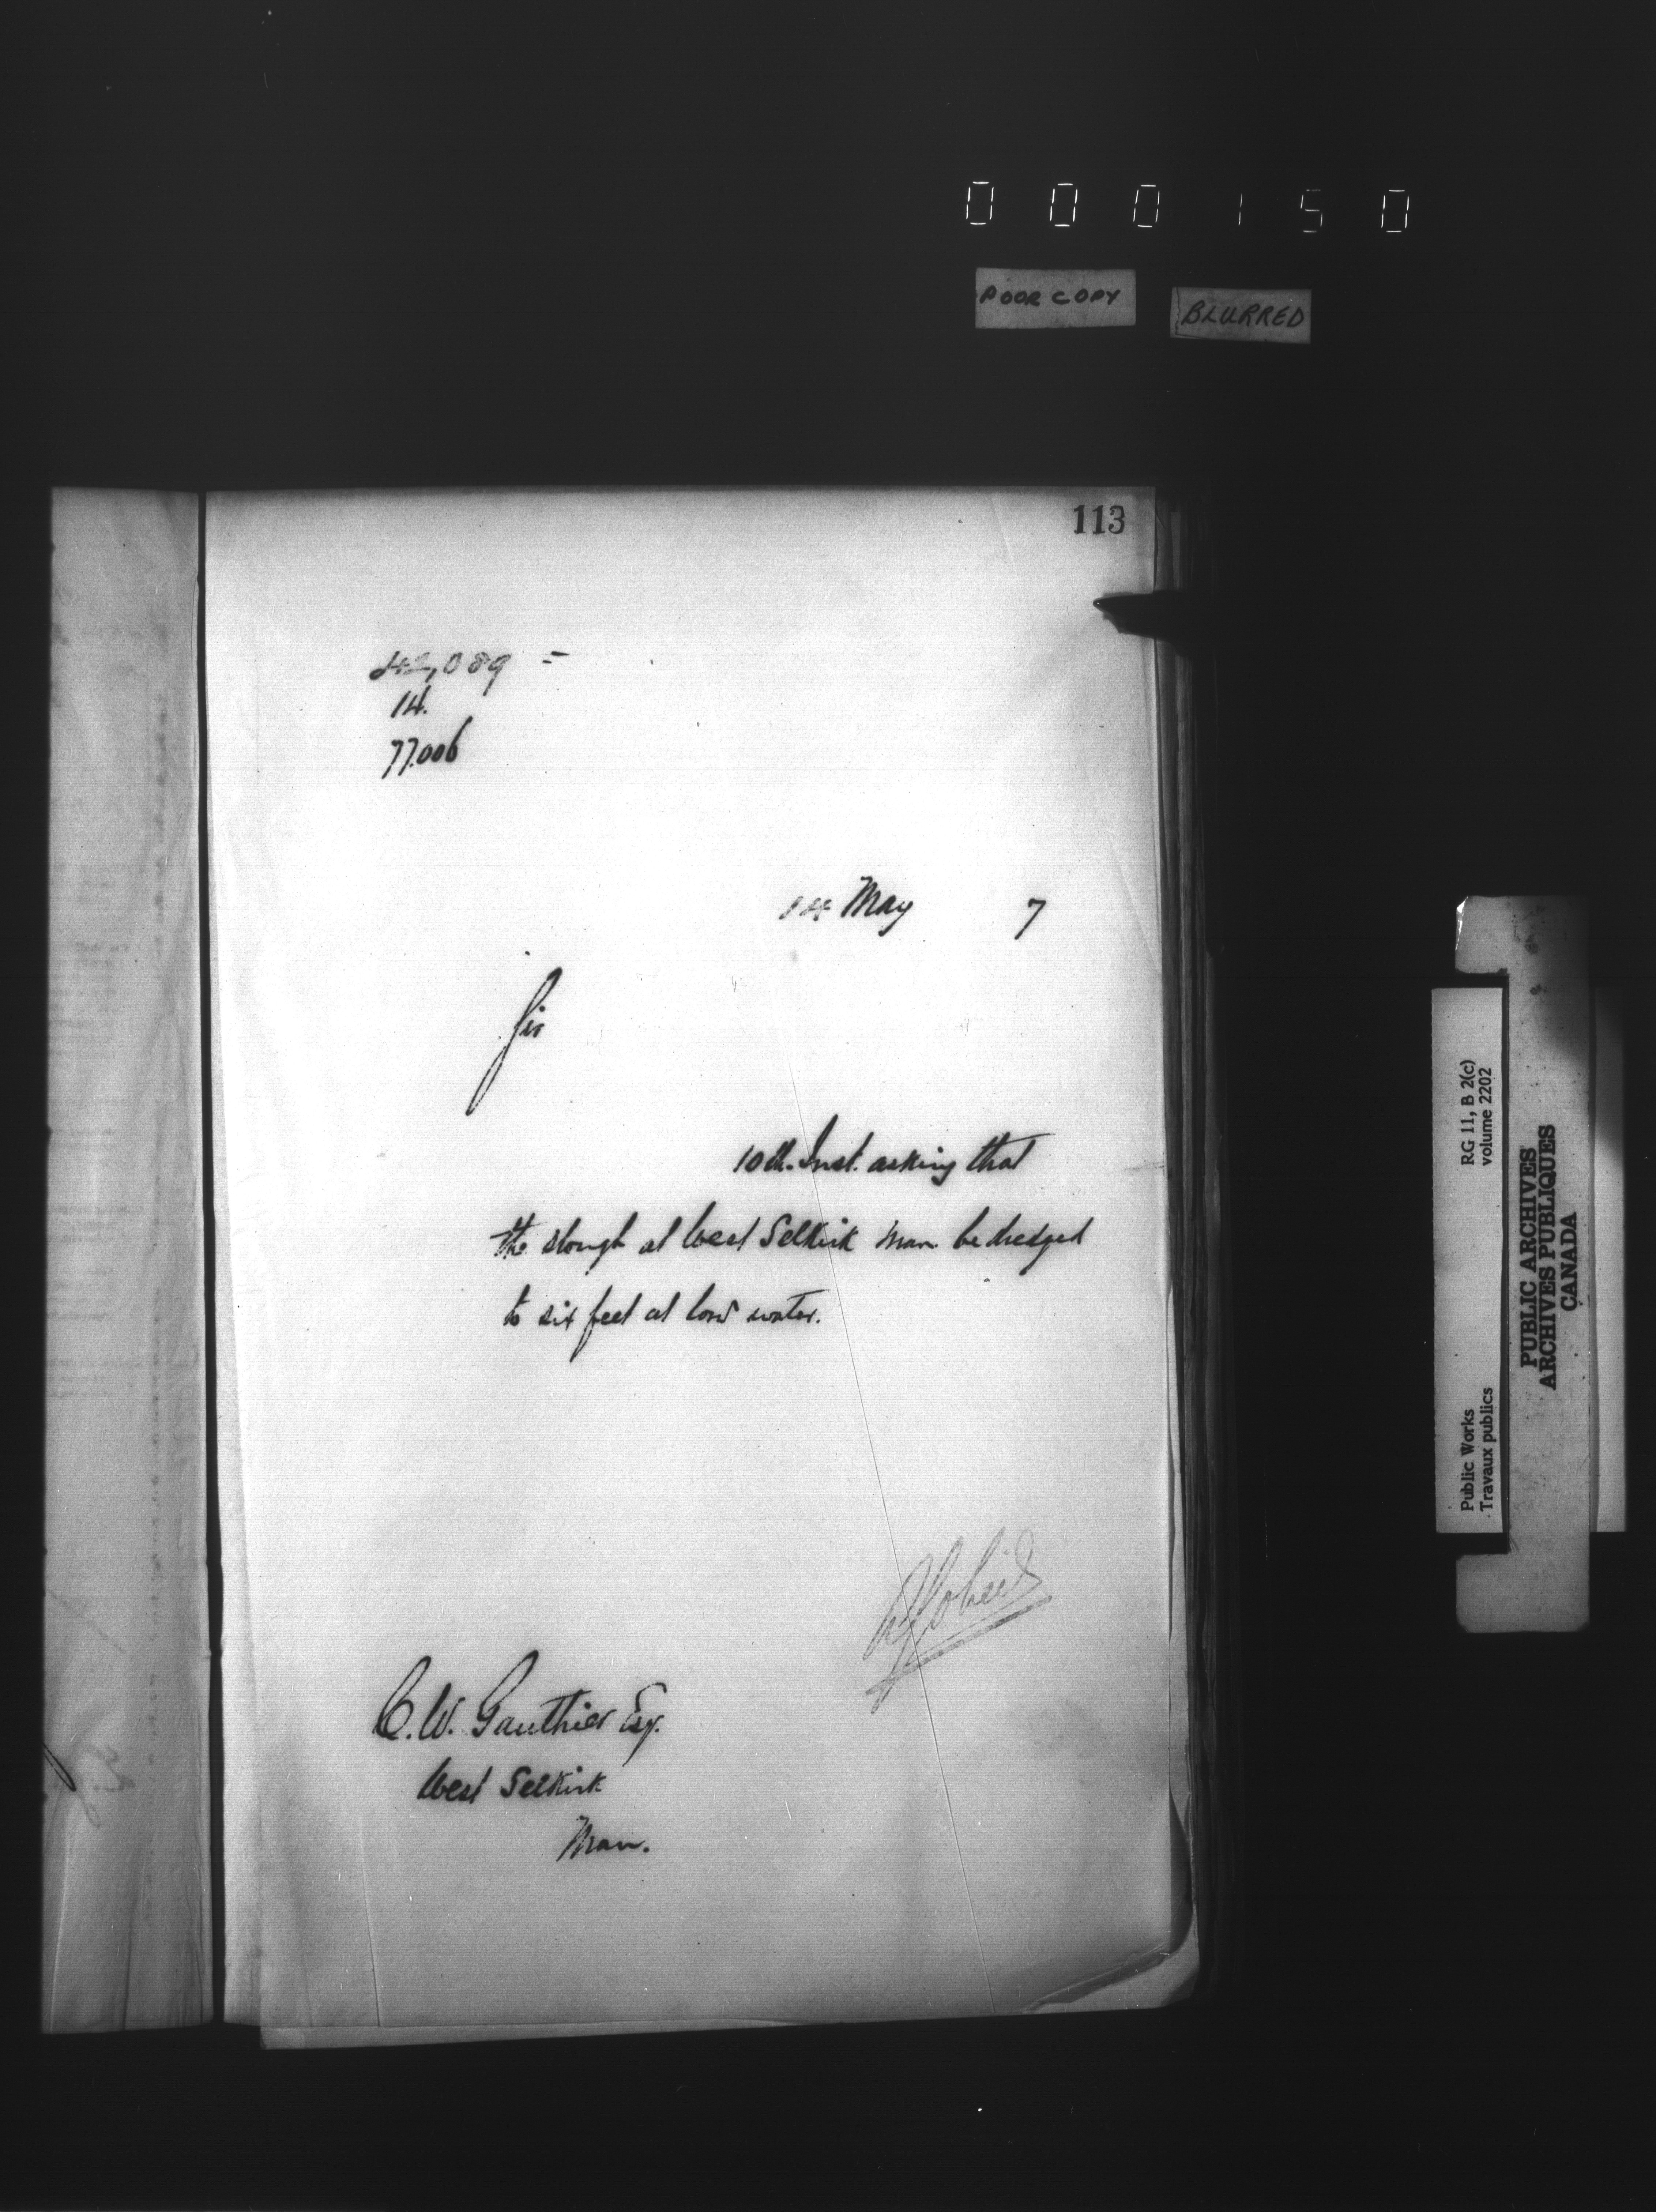 000150
POOR COPY
BLURRED
113
42,089 =
14.
77.006
14 May 7
Sir
10th. Inst. asking that
the slough at West Selkirk Man. be dredged
to six feet at low water.
C. W. Gauthier Esq.
West Selkirk
Man.
RG 11, B 2(c)
volume 2202
Public Works
Travaux publics
PUBLIC ARCHIVES
ARCHIVES PUBLIQUES
CANADA